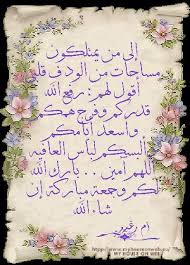 إلى من يمتلكون
مساحات من الود في قلبي
أقول لهم : رفع الله
قدركم وفرج همكم
وأسعد أيامكم
ألبسكم لباس العافية
اللهم آمين .. بارك الله
لكم وجمعة مباركة إن
شاء الله
أم
MY HOUSE ON WEB